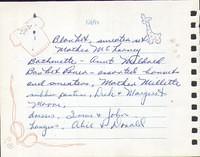 Blanket, sweater set
Mother McClarney
Bathinette - Aunt Mildred
Basket Liner - assorted bonnets
and sweaters, Mother Millette
rubber panties, Dick & Margaret
Moore,
dresses, Irene & John
hanger, Alice & Donald